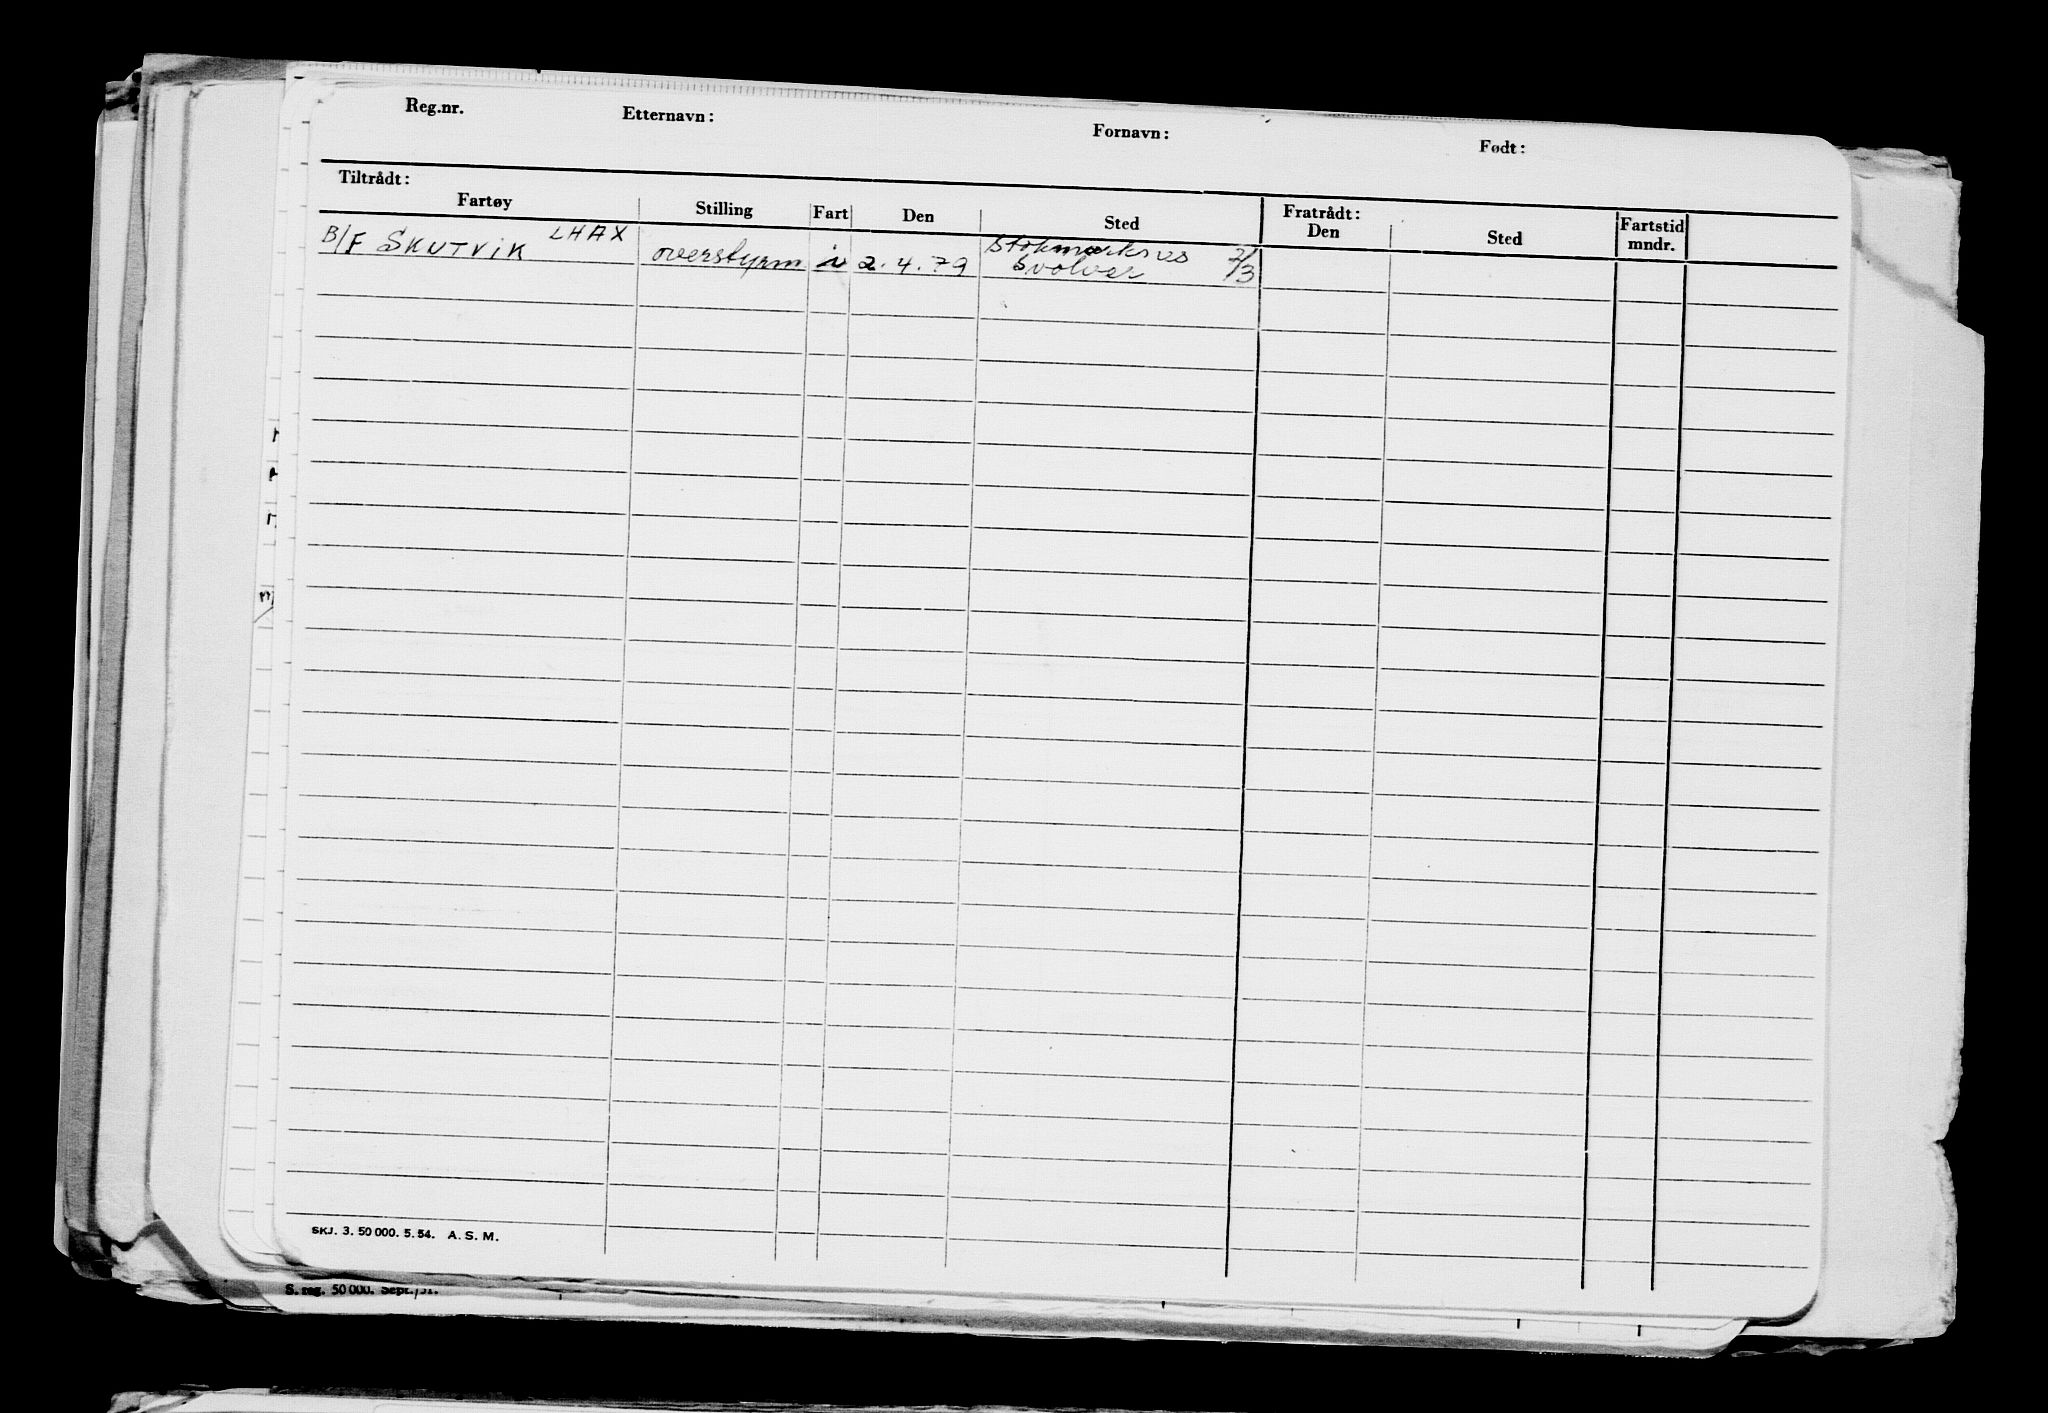 Reg.nr. Etternavn: Fornavn: Født:
Tiltrådt: Fratrådt:
Fartøy Stilling Fart Den Sted Den Sted Fartstid mndr.
B/F SKUTVIK LHAX overstyrm i 2.4.79 Stokmarknes 2/3
Svolvær
SKJ. 3. 50 000. 5. 54. A. S. M.
S. reg. 50 000. Sept.